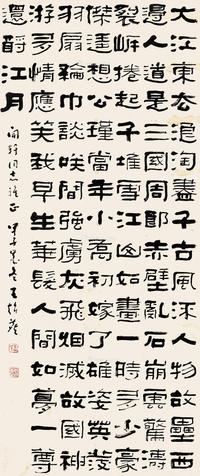 大江東去浪淘盡千古風流人物故壘西
邊人道是三國周郎赤壁亂石崩雲驚濤
裂岸捲起千堆雪江山如畫一時多少豪
傑遥想公瑾當年小喬初嫁了雄姿英發
羽扇綸巾談咲間強虜灰飛烟滅故國神
游多情應笑我早生華髮人間如夢一尊
還酹江月
同志 正 甲子